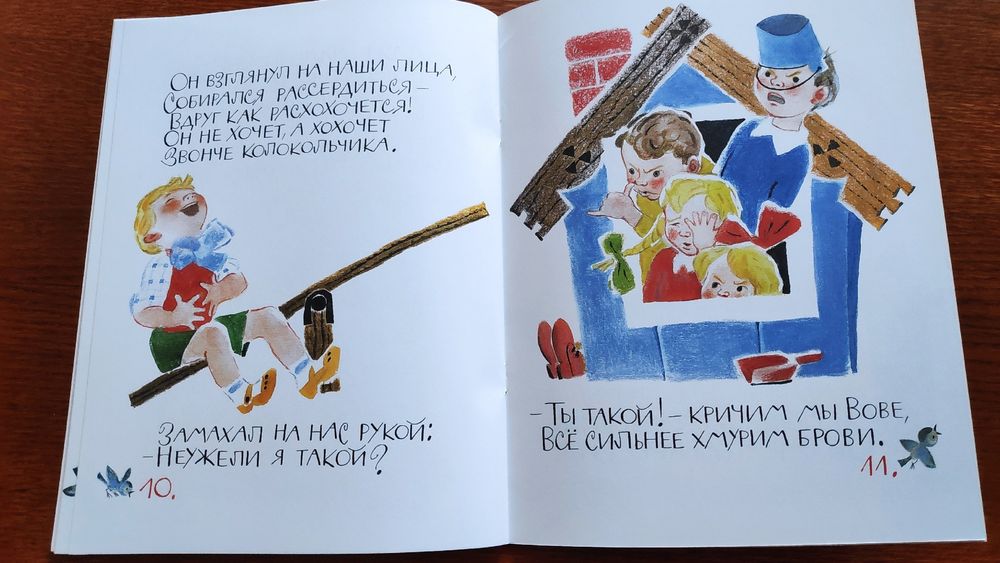 Он взглянул на наши лица,
Собирался рассердиться —
Вдруг как расхохочется!
Он не хочет, а хохочет
Звонче колокольчика.
Замахал на нас рукой:
— Неужели я такой?
10.
— Ты такой! — кричим мы Вове,
Всё сильнее хмурим брови.
11.